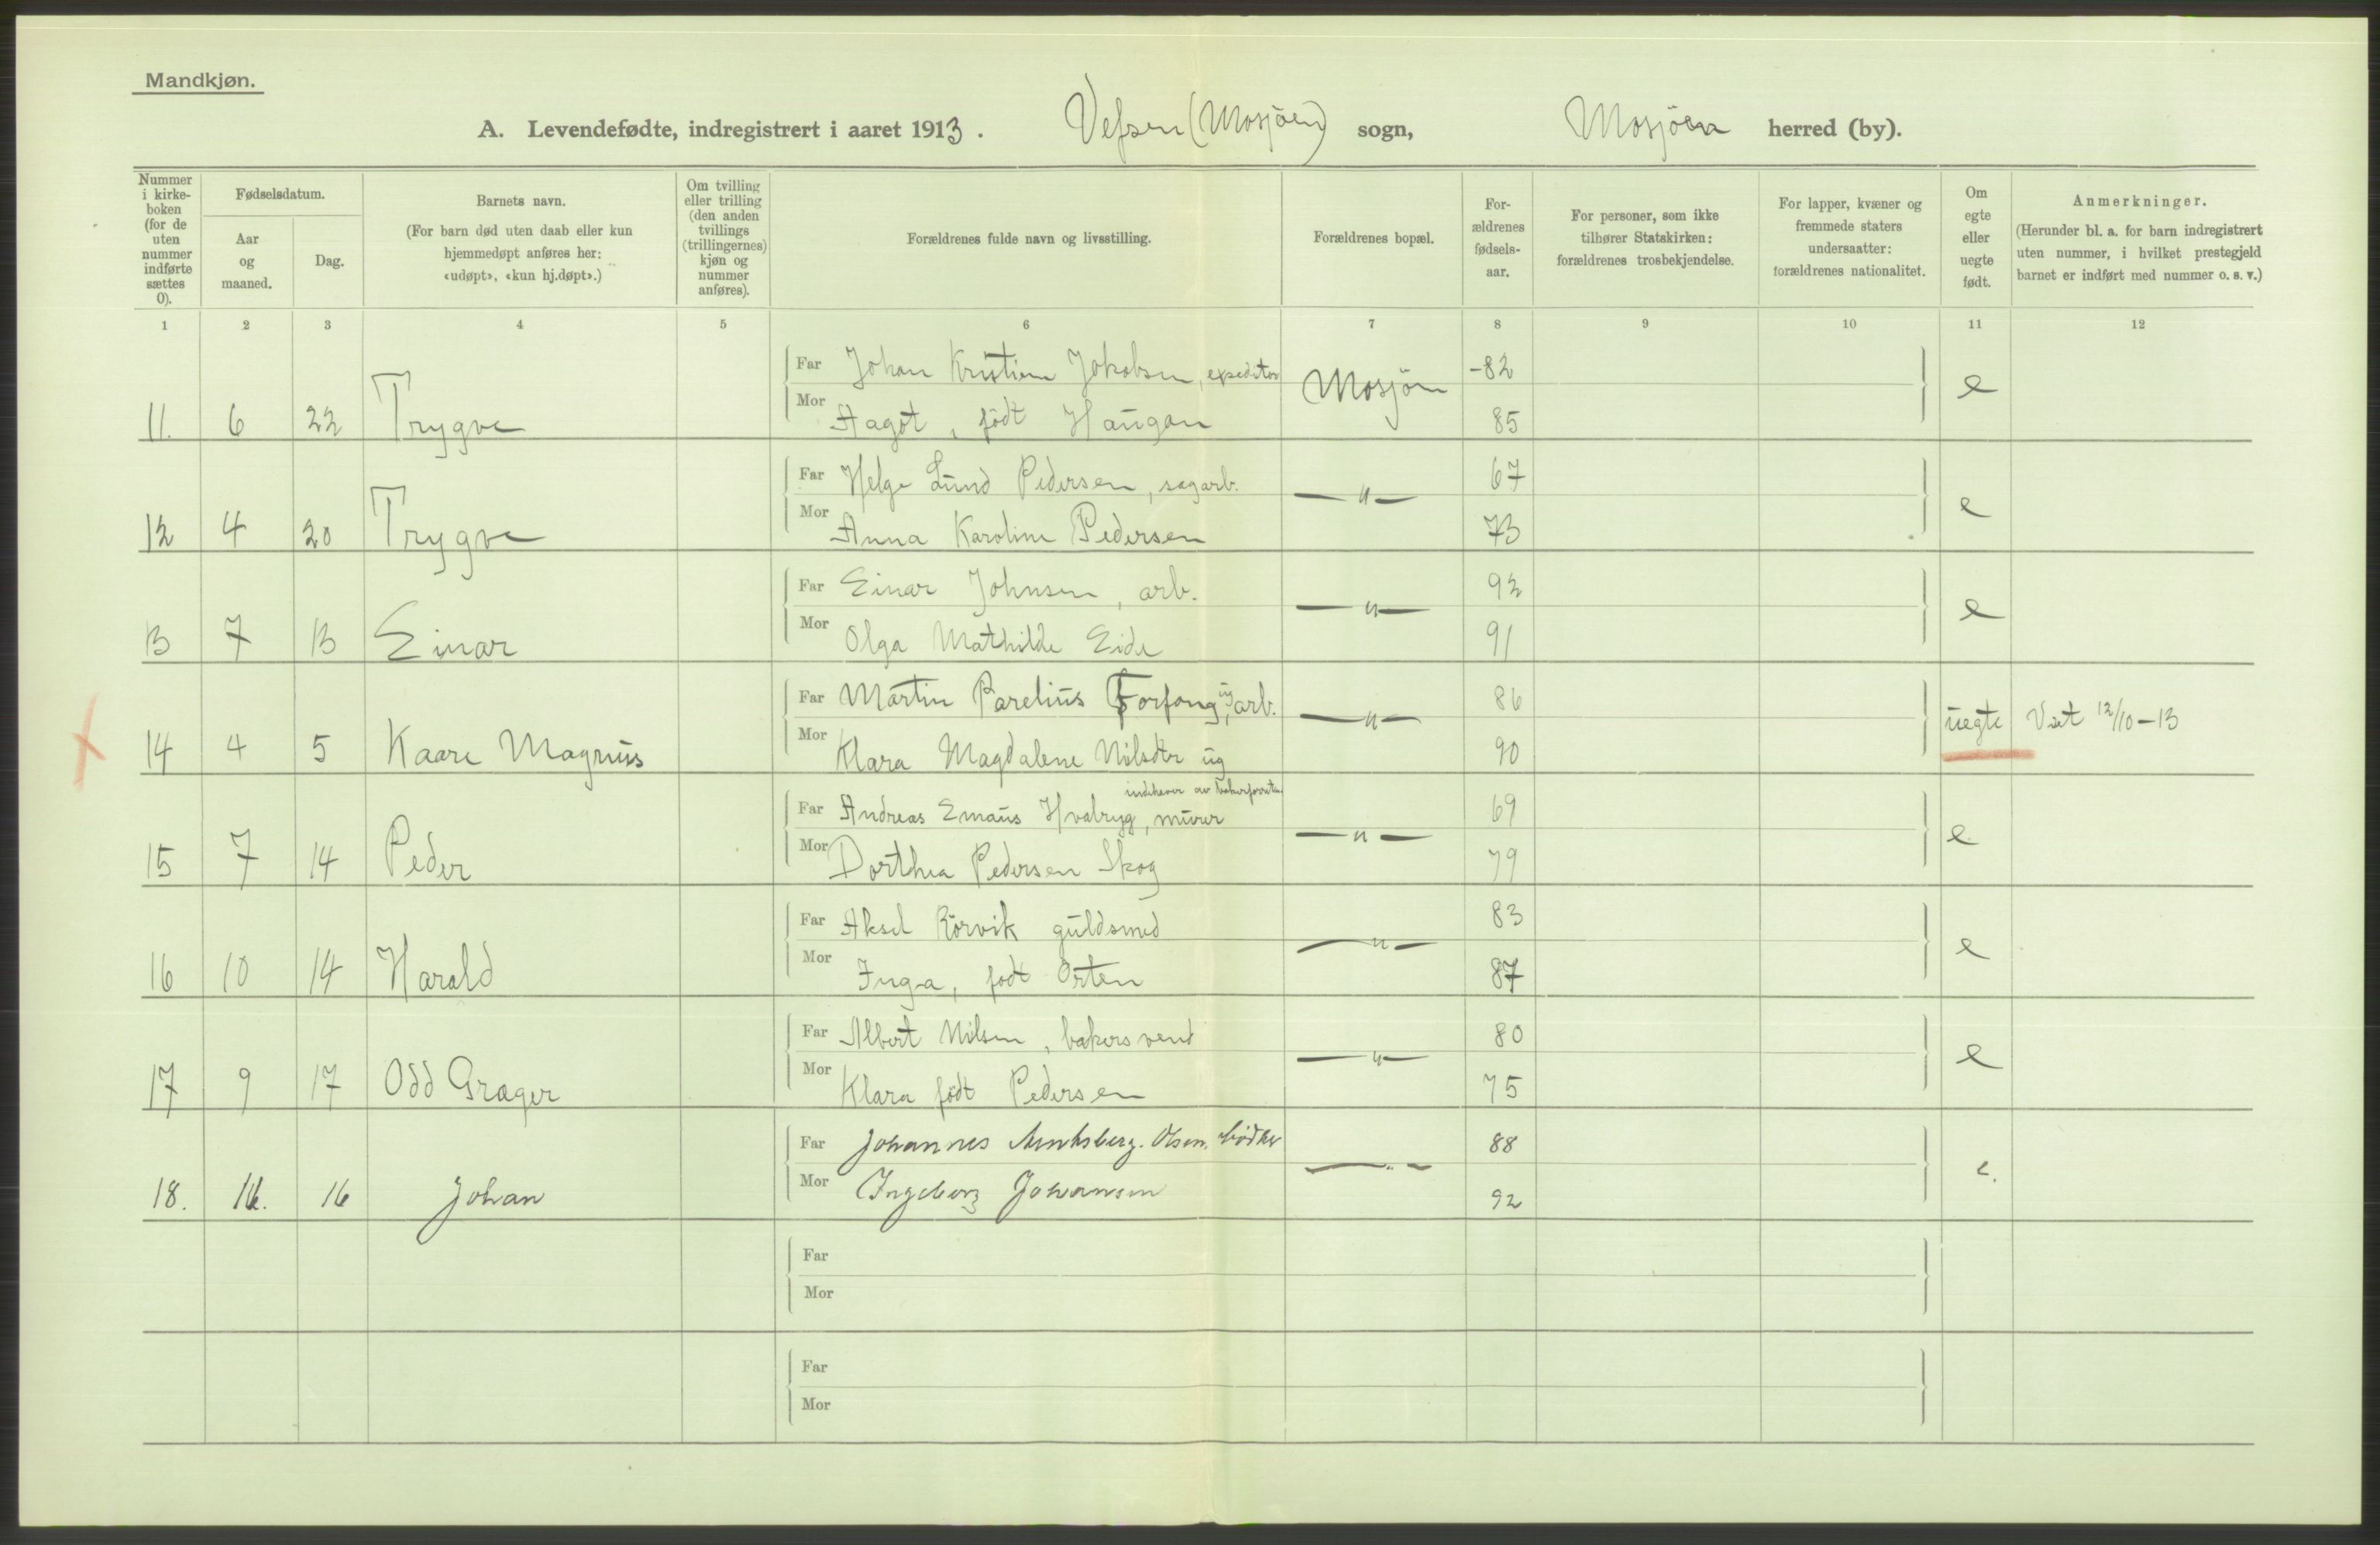 Mandkjøn.
A. Levendefødte, indregistrert i aaret 1913. Vefsen (Mosjöen) sogn, Mosjöen herred (by).
Nummer i kirke-boken (for de uten nummer indførte sættes 0).
Fødselsdatum.
Aar og maaned.
Dag.
Barnets navn.
(For barn død uten daab eller kun hjemmedøpt anføres her: «udøpt», «kun hj.døpt».)
Om tvilling eller trilling (den anden tvillings (trillingernes) kjøn og nummer anføres).
Forældrenes fulde navn og livsstilling.
Forældrenes bopæl.
For-ældrenes fødsels-aar.
For personer, som ikke tilhører Statskirken: forældrenes trosbekjendelse.
For lapper, kvæner og fremmede staters undersaatter: forældrenes nationalitet.
Om egte eller uegte født.
Anmerkninger.
(Herunder bl. a. for barn indregistrert uten nummer, i hvilket prestegjeld barnet er indført med nummer o. s. v.)
1 2 3 4 5 6 7 8 9 10 11 12
Far Johan Kristian Jakobsen, expeditør Mosjön -82 e
11. 6 22 Trygve Mor Aagot, född Haugan 85
Far Helge Lund Pedersen, sagarb. —"— 67 e
12 4 20 Trygve Mor Anna Karoline Pedersen 73
Far Einar Johnsen, arb. —"— 92 e
13 7 13 Einar Mor Olga Mathilde Eide 91
Far Martin Parelius Forfang, ug arb. —"— 86 uegte Vet 12/10-13
14 4 5 Kaare Magnus Mor Klara Magdalene Nilsdtr ug 90
Far Andreas Emaus Hvalryg, murer —"— 69 e
15 7 14 Peder Mor Dorthea Pedersen Skog 79
Far Aksel Rörvik guldsmed —"— 83 e
16 10 14 Harald Mor Inga, född Orten 87
Far Albert Nilsen, bakersvend —"— 80 e
17 9 17 Odd Græger Mor Klara född Pedersen 75
Far Johannes Olsen. bødker —"— 88 e.
18. 16 Johan Mor Ingeborg Johansen 92
Far
Mor
Far
Mor